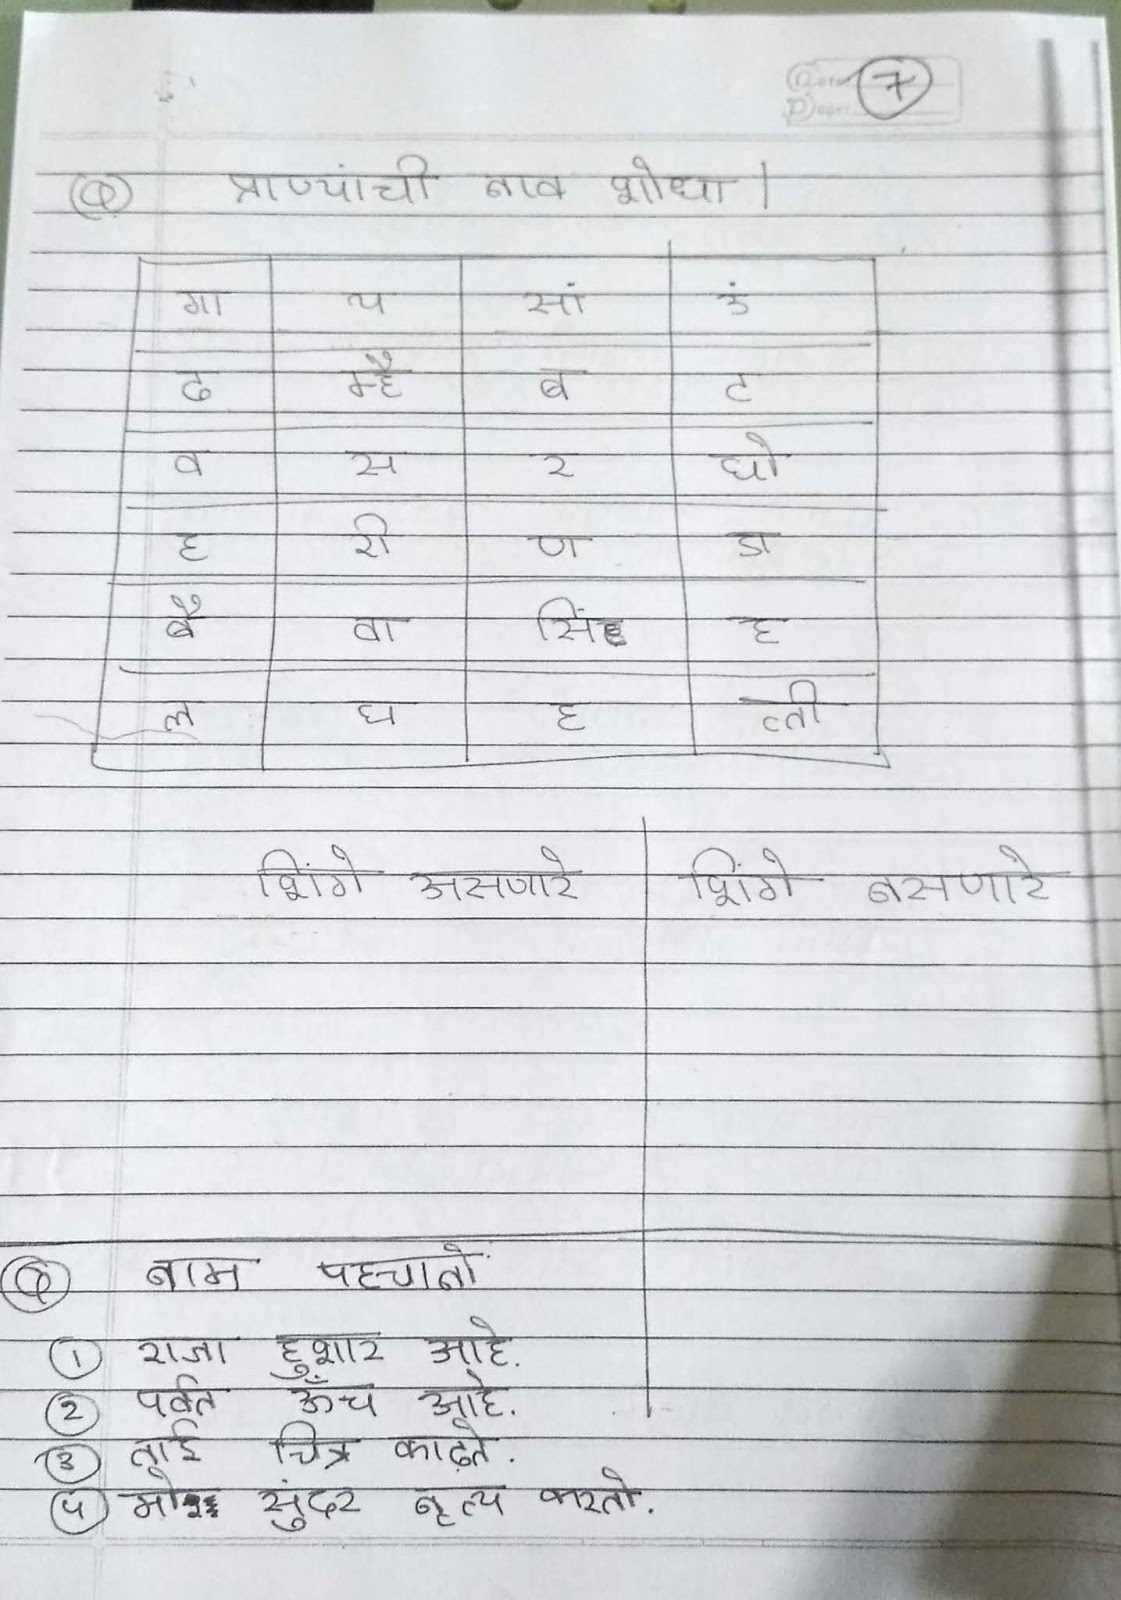 Date 7
Page:
Q प्राण्यांची नाव शोधा।
गा य सां उं
ढ म्है ब ट
व स र घो
ह री ण डा
बै वा सिंह ह
ल घ ह त्ती
शिंगे असणारे शिंगे नसणारे
Q नाम पहचानों
1 राजा हुशार आहे.
2 पर्वत ऊँच आहे.
3 ताई चित्र काढ़ते.
4 मोर सुंदर नृत्य करतो.